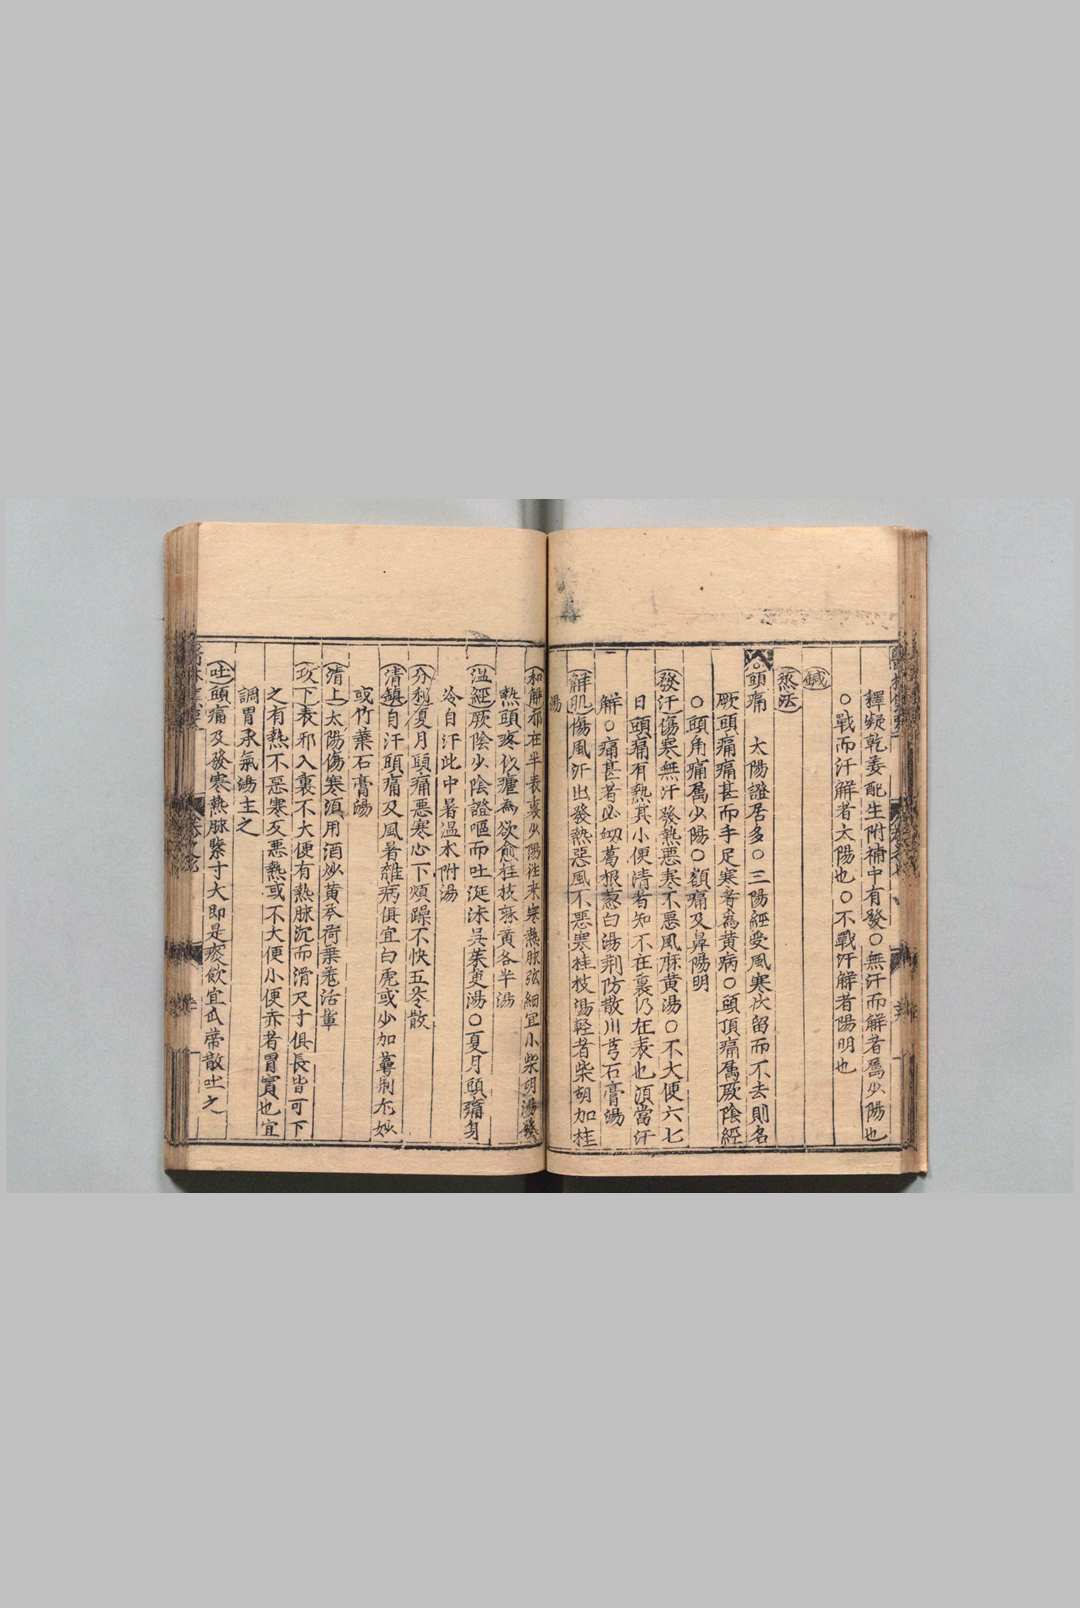 釋疑乾姜配生附補中有發○無汗而解者屬少陽也
○戰而汗解者太陽也○不戰汗解者陽明也
鍼
蒸法
頭痛 太陽證居多○三陽經受風寒伏留而不去則名
厥頭痛痛甚而手足寒者為黄病○頭頂痛屬厥陰經
○頭角痛屬少陽○額痛及鼻陽明
發汗 傷寒無汗發熱惡寒不惡風麻黄湯○不大便六七
日頭痛有熱其小便清者知不在裏仍在表也湏當汗
解○痛甚者必衂葛根葱白湯荆防散川芎石膏湯
解肌 傷風汗出發熱惡風不惡寒桂枝湯輕者柴胡加桂
湯
和解 邪在半表裏少陽往来寒熱脉弦細宜小柴胡湯發
熱頭疼似瘧為欲愈桂枝麻黄各半湯
溫經 厥陰少陰證嘔而吐涎沫吳茱萸湯○夏月頭痛身
冷自汗此中暑温水附湯
分利 夏月頭痛惡寒心下煩躁不快五苓散
清鎮 自汗頭痛及風暑雜病俱宜白虎或少加蔓荆尤妙
或竹葉石膏湯
清上 太陽傷寒湏用酒炒黄芩荷葉羗活軰
攻下 表邪入裏不大便有熱脉沉而滑尺寸俱長皆可下
之有熱不惡寒反惡熱或不大便小便赤者胃實也宜
調胃承氣湯主之
吐 頭痛及發寒熱脉緊寸大即是痰飲宜瓜蒂散吐之